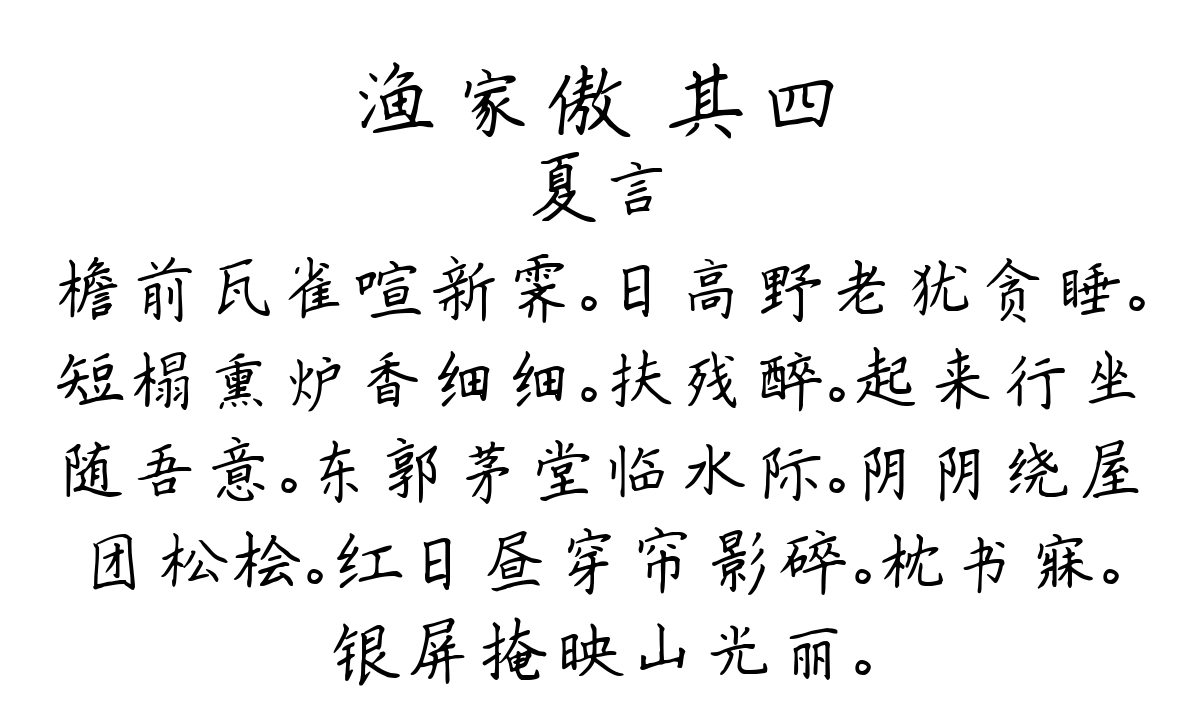 渔家傲 其四
夏言
檐前瓦雀喧新霁。日高野老犹贪睡。
短榻熏炉香细细。扶残醉。起来行坐
随吾意。东郭茅堂临水际。阴阴绕屋
团松桧。红日昼穿帘影碎。枕书寐。
银屏掩映山光丽。